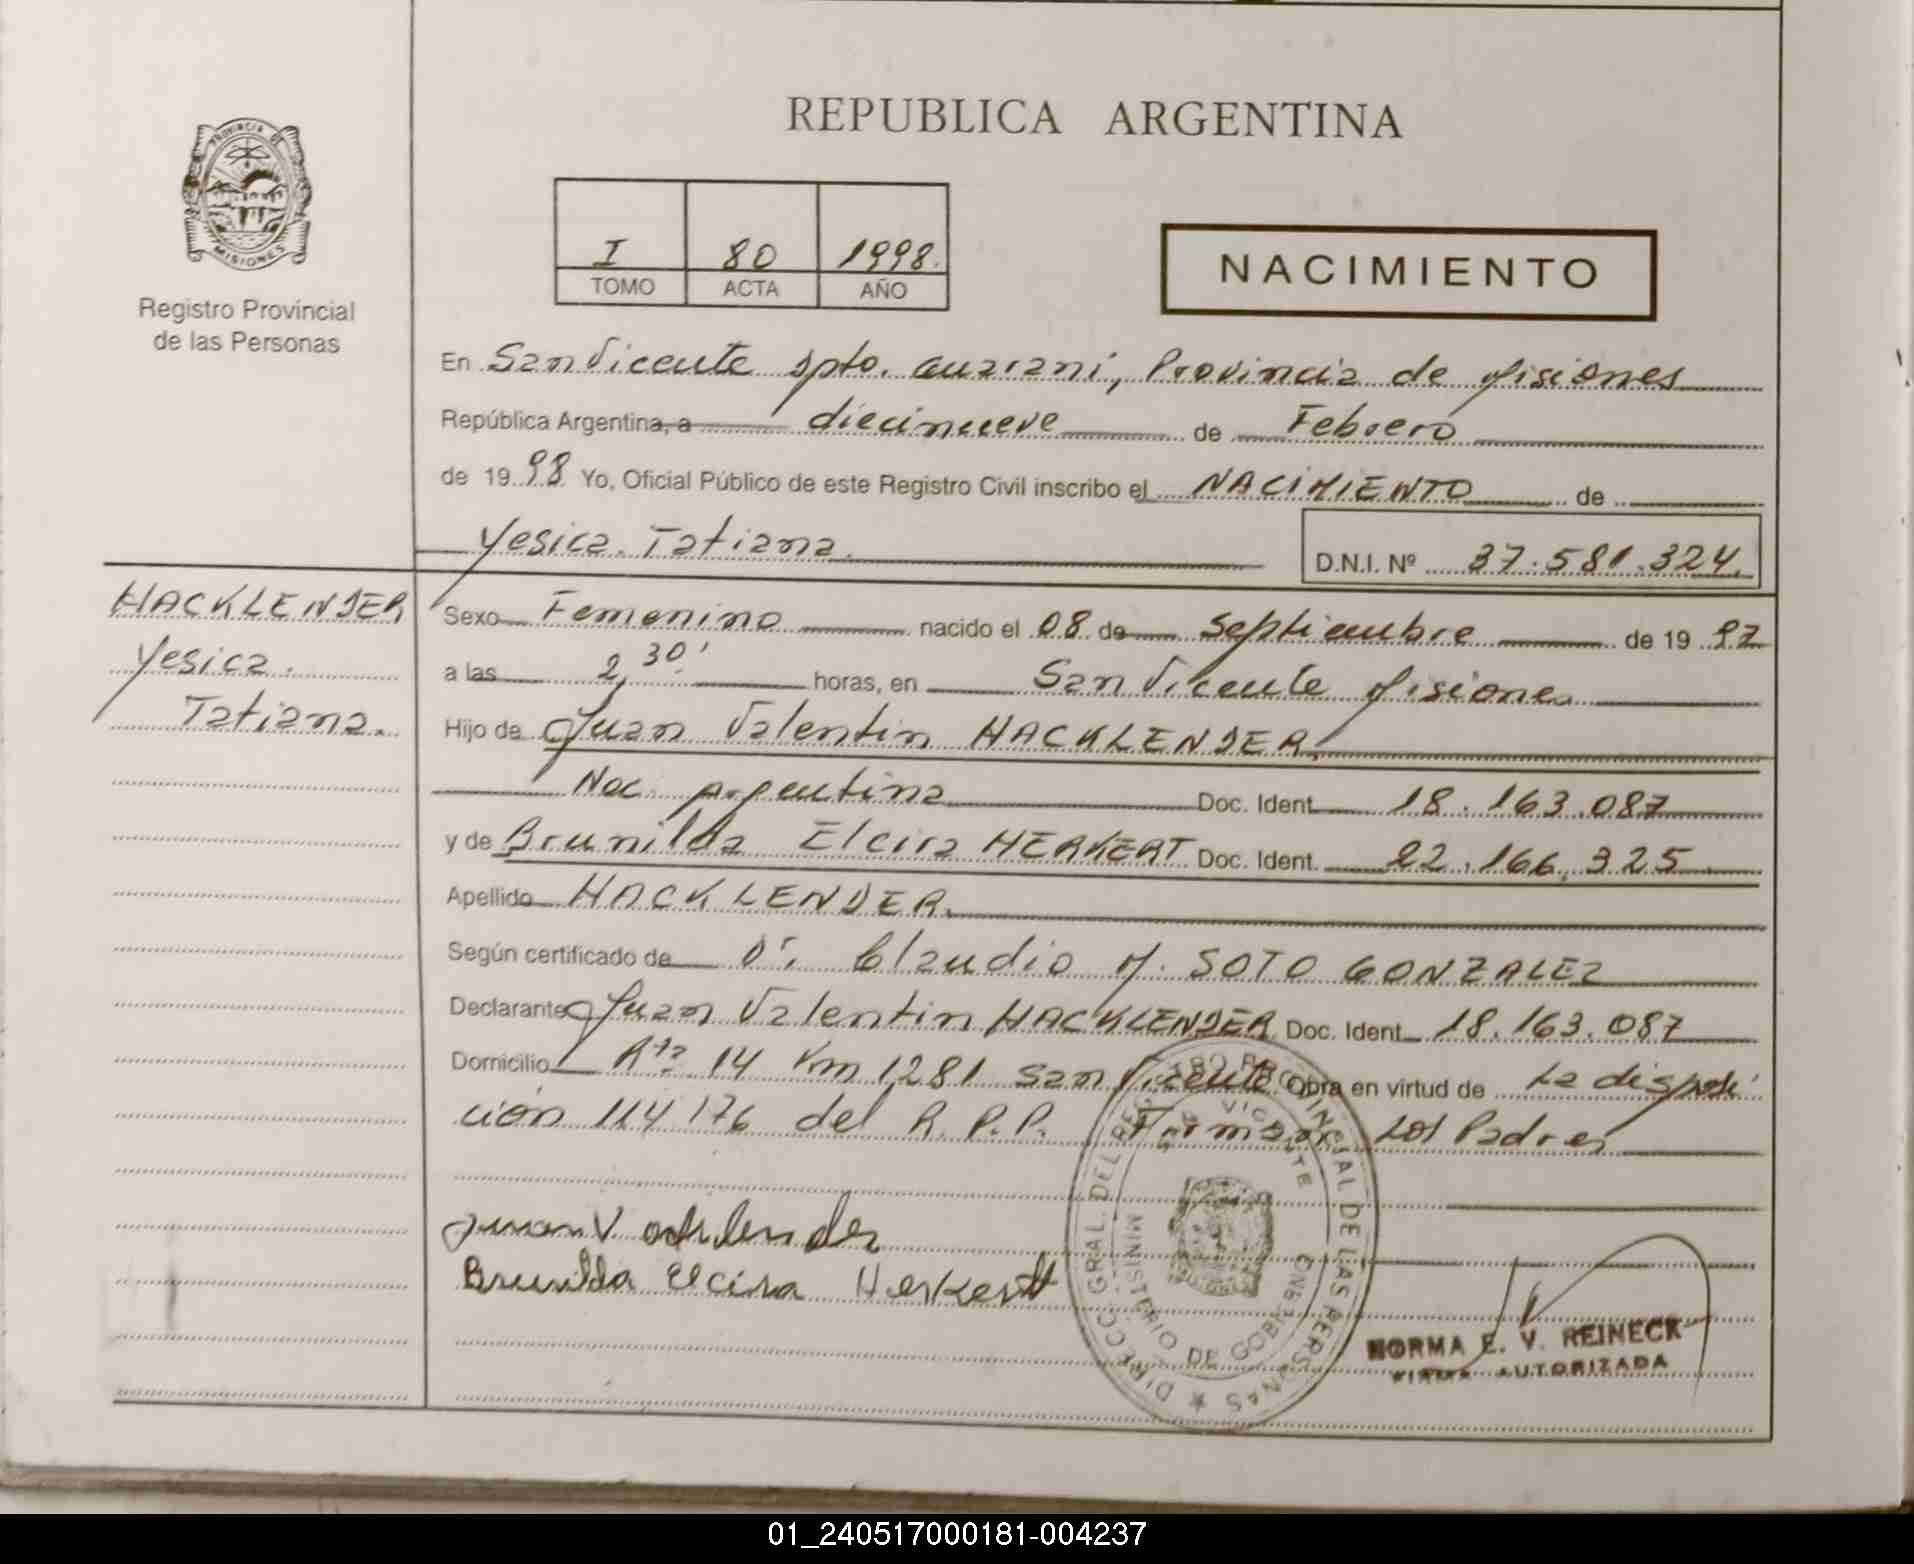 PROVINCIA DE MISIONES
Registro Provincial
de las Personas
REPUBLICA ARGENTINA
I 80 1998.
TOMO ACTA AÑO
NACIMIENTO
En San Vicente Dpto. Guarani, Provincia de Misiones
República Argentina, a diecinueve de Febrero
de 1998 Yo, Oficial Público de este Registro Civil inscribo el NACIMIENTO de
Yesica Tatiana.
D.N.I. Nº 37.581.324.
HACKLENDER
Yesica
Tatiana.
Sexo Femenino nacido el 08 de Septiembre de 1997
a las 2,30' horas, en San Vicente Misiones
Hijo de Juan Valentin HACKLENDER.
Nac. Argentina Doc. Ident. 18.163.087
y de Brunilda Elcira HERKERT Doc. Ident. 22.166.325
Apellido HACKLENDER.
Según certificado de Dr. Claudio M. SOTO GONZALEZ
Declarante Juan Valentin HACKLENDER Doc. Ident. 18.163.087
Domicilio Rta 14 Km 1281 San Vicente Obra en virtud de La disposi
ción 114/76 del R.P.P. Firman Los Padres
Juan V
Brunilda Elcira Herkert
DIRECC. GRAL. DEL REGISTRO PROVINCIAL DE LAS PERSONAS
MINISTERIO DE GOBIERNO
VICENTE
NORMA E. V. REINECK
FIRMA AUTORIZADA
01_240517000181-004237